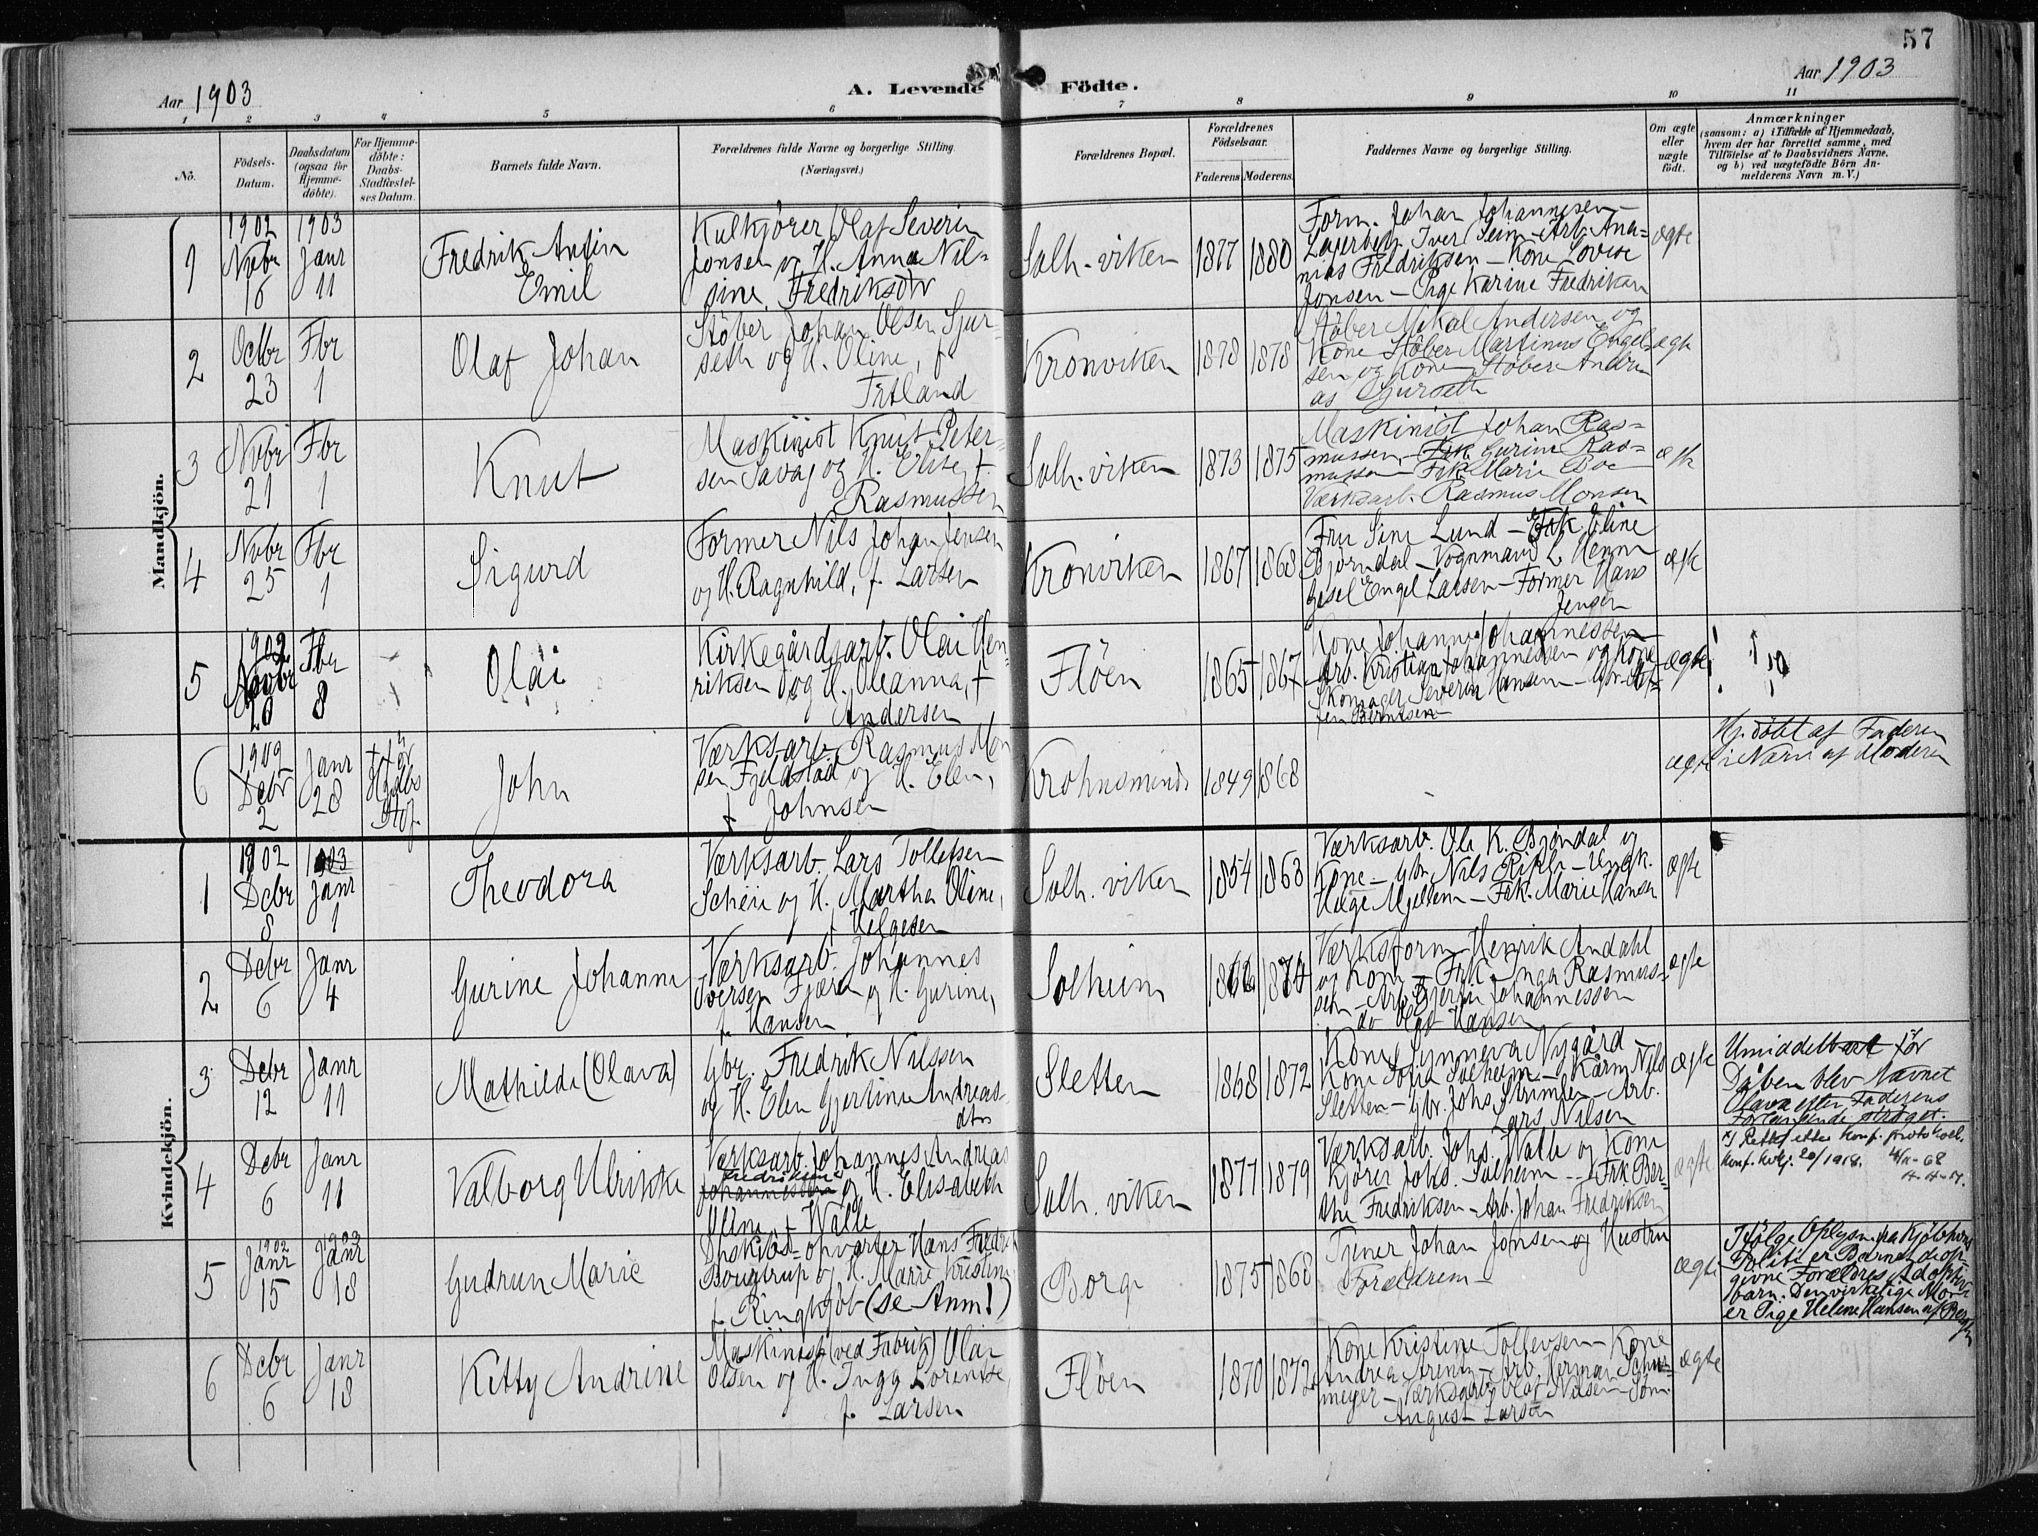 57
Aar 1903
A. Levende Födte.
Aar 1903
1 2 3 4 5 6 7 8 9 10 11
No.
Födsels-Datum.
Daabsdatum (ogsaa for Hjemme-döbte).
For Hjemme-döbte: Daabs-Stadfæstel-ses Datum.
Barnets fulde Navn.
Forældrenes fulde Navne og borgerlige Stilling.
(Næringsvei.)
Forældrenes Bopæl.
Forældrenes Födselsaar.
Faderens Moderens.
Faddernes Navne og borgerlige Stilling.
Om ægte eller uægte födt.
Anmærkninger
(saasom: a) i Tilfælde af Hjemmedaab,
hvem der har forrettet samme, med
Tilföielse af to Daabsvidners Navne,
og b) ved uægtefödte Börn An-
melderens Navn m. V.)
Mandkjön.
1
1902 Novbr 16
1903 Janr 11
Fredrik Anfin
Emil
Kulkjører Olaf Severin
Jonsen og H. Anna Nil-
sine Fredriksdtr
Solh.viken
1877 1880
Form. Johan Johannesen -
Lagerbetj. Iver Seim - Arb. Ana-
nias Fredriksen - Kone Lovise
Jonsen - Pige Karine Fredriksen
ægte
2
Octbr 23
Fbr 1
Olaf Johan
Støber Johan Olsen Sjur-
seth og H. Oline, f.
Fretland
Kronviken
1878 1878
Støber Mikal Andersen og
Kone Støber Martinus Engel-
sen og Kone Støber Andre
as Sjurseth
ægte
3
Novbr 21
Fbr 1
Knut
Maskinist Knut Peter-
sen Savåg og H. Elise, f.
Rasmussen
Solh.viken
1873 1875
Maskinist Johan Ras-
mussen, - Frk. Gurine Ras-
mussen - Frk. Marie Boe
Værksarb. Rasmus Monsen
ægte
4
Novbr 25
Fbr 1
Sigurd
Former Nils Johan Jensen
og H. Ragnhild, f. Larsen
Kronviken
1867 1868
Fru Sine Lund - Frk Eline
Bjørndal - Vognmand L. Henn
Gesel Engel Larsen - Former Hans
Jensen
ægte
5
1902 Novbr 20
Fbr 8
Olai
Kirkegårdsarb. Olai Hen-
riksen og H. Oleanna, f.
Andersen
Fløen
1865 1867
Kone Johanne Johannessen -
Arb. Kristian Johannessen og Kone
Skomager Severin Hansen -
ægte
6
1902 Debr 2
Janr 28
John
Værksarb. Rasmus Mon
sen Fjeldstad og H. Elen,
f. Johnsen
Krohnsminde
1849 1868
ægte
Hj. döbt af Faderen
i Nærv. af Moderen
Kvindekjön.
1
1902 Debr 8
1903 Janr 1
Theodora
Værksarb. Lars Tollefsen
Scheie og H. Martha Oline,
f. Helgesen
Solh. viken
1864 1863
Værksarb. Ole K. Bjøndal og
Kone - Gbr. Nils Rikli - Ungk.
Helge Mjeltem - Frk. Marie Hansen
ægte
2
Debr 6
Janr 4
Gurine Johanne
Værksarb. Johannes
Iversen Fjære og H. Gurine,
f. Hansen
Solheim
1874
Værksform. Henrik Andahl
og Kone - Frk. Inga Rasmus-
sen - Arb. Johannessen
do Hansen
ægte
3
Debr 12
Janr 11
Mathilde (Olava)
Gbr. Fredrik Nilssen
og H. Elen Gjertine Andreas-
dtr
Sletten
1868 1872
Kone Synneva Nygård -
Kone Sofie Solheim - Nils
Sletten - Gbr. Johs Strimlen - Arb.
Lars Nilsen
ægte
Umiddelbart før
Dåben blev Navnet
Olava efter Faderens
Forlangende strøget.
4
Debr 6
Janr 11
Valborg Ulrikke
Værksarb. Johannes Andreas
Fredriksen
Johannessen og H. Elisabeth
Oline, f. Walle
Solh. viken
1877 1879
Værksarb. Johs. Walle og Kone
Kjører Johs. Solheim - Frk. Ber-
the Fredriksen - Arb. Johan Fredriksen
ægte
Rettet etter konf. protokoll.
5
1902 Janr 15
1903 Janr 18
Gudrun Marie
Dampskibs-opvarter Hans Fredr
Bougtrup og H. Marie Kristine
f. Ringkjøb (se Anm!)
Borg
1875 1868
Tjener Johan Jonsen og Hustru
Forældrene -
ægte
Ifølge Oplysn. fra Kjøbhvns
Politi er Barnet de op-
givne Forældres Adoptiv-
barn. Den virkelige Mor
er Pige Helene Hansen af Bergen
6
Debr 6
Janr 18
Kitty Andrine
Maskinist (ved Fabrik) Olai
Olsen og H. Inga Lorentse,
f. Larsen
Fløen
1870 1872
Kone Kristine Tollevsen - Kone
Andrea Arentz - Arb. Herman
meyer - Værksarb. Olaf Nilsen - Søm.
August Larsen
ægte